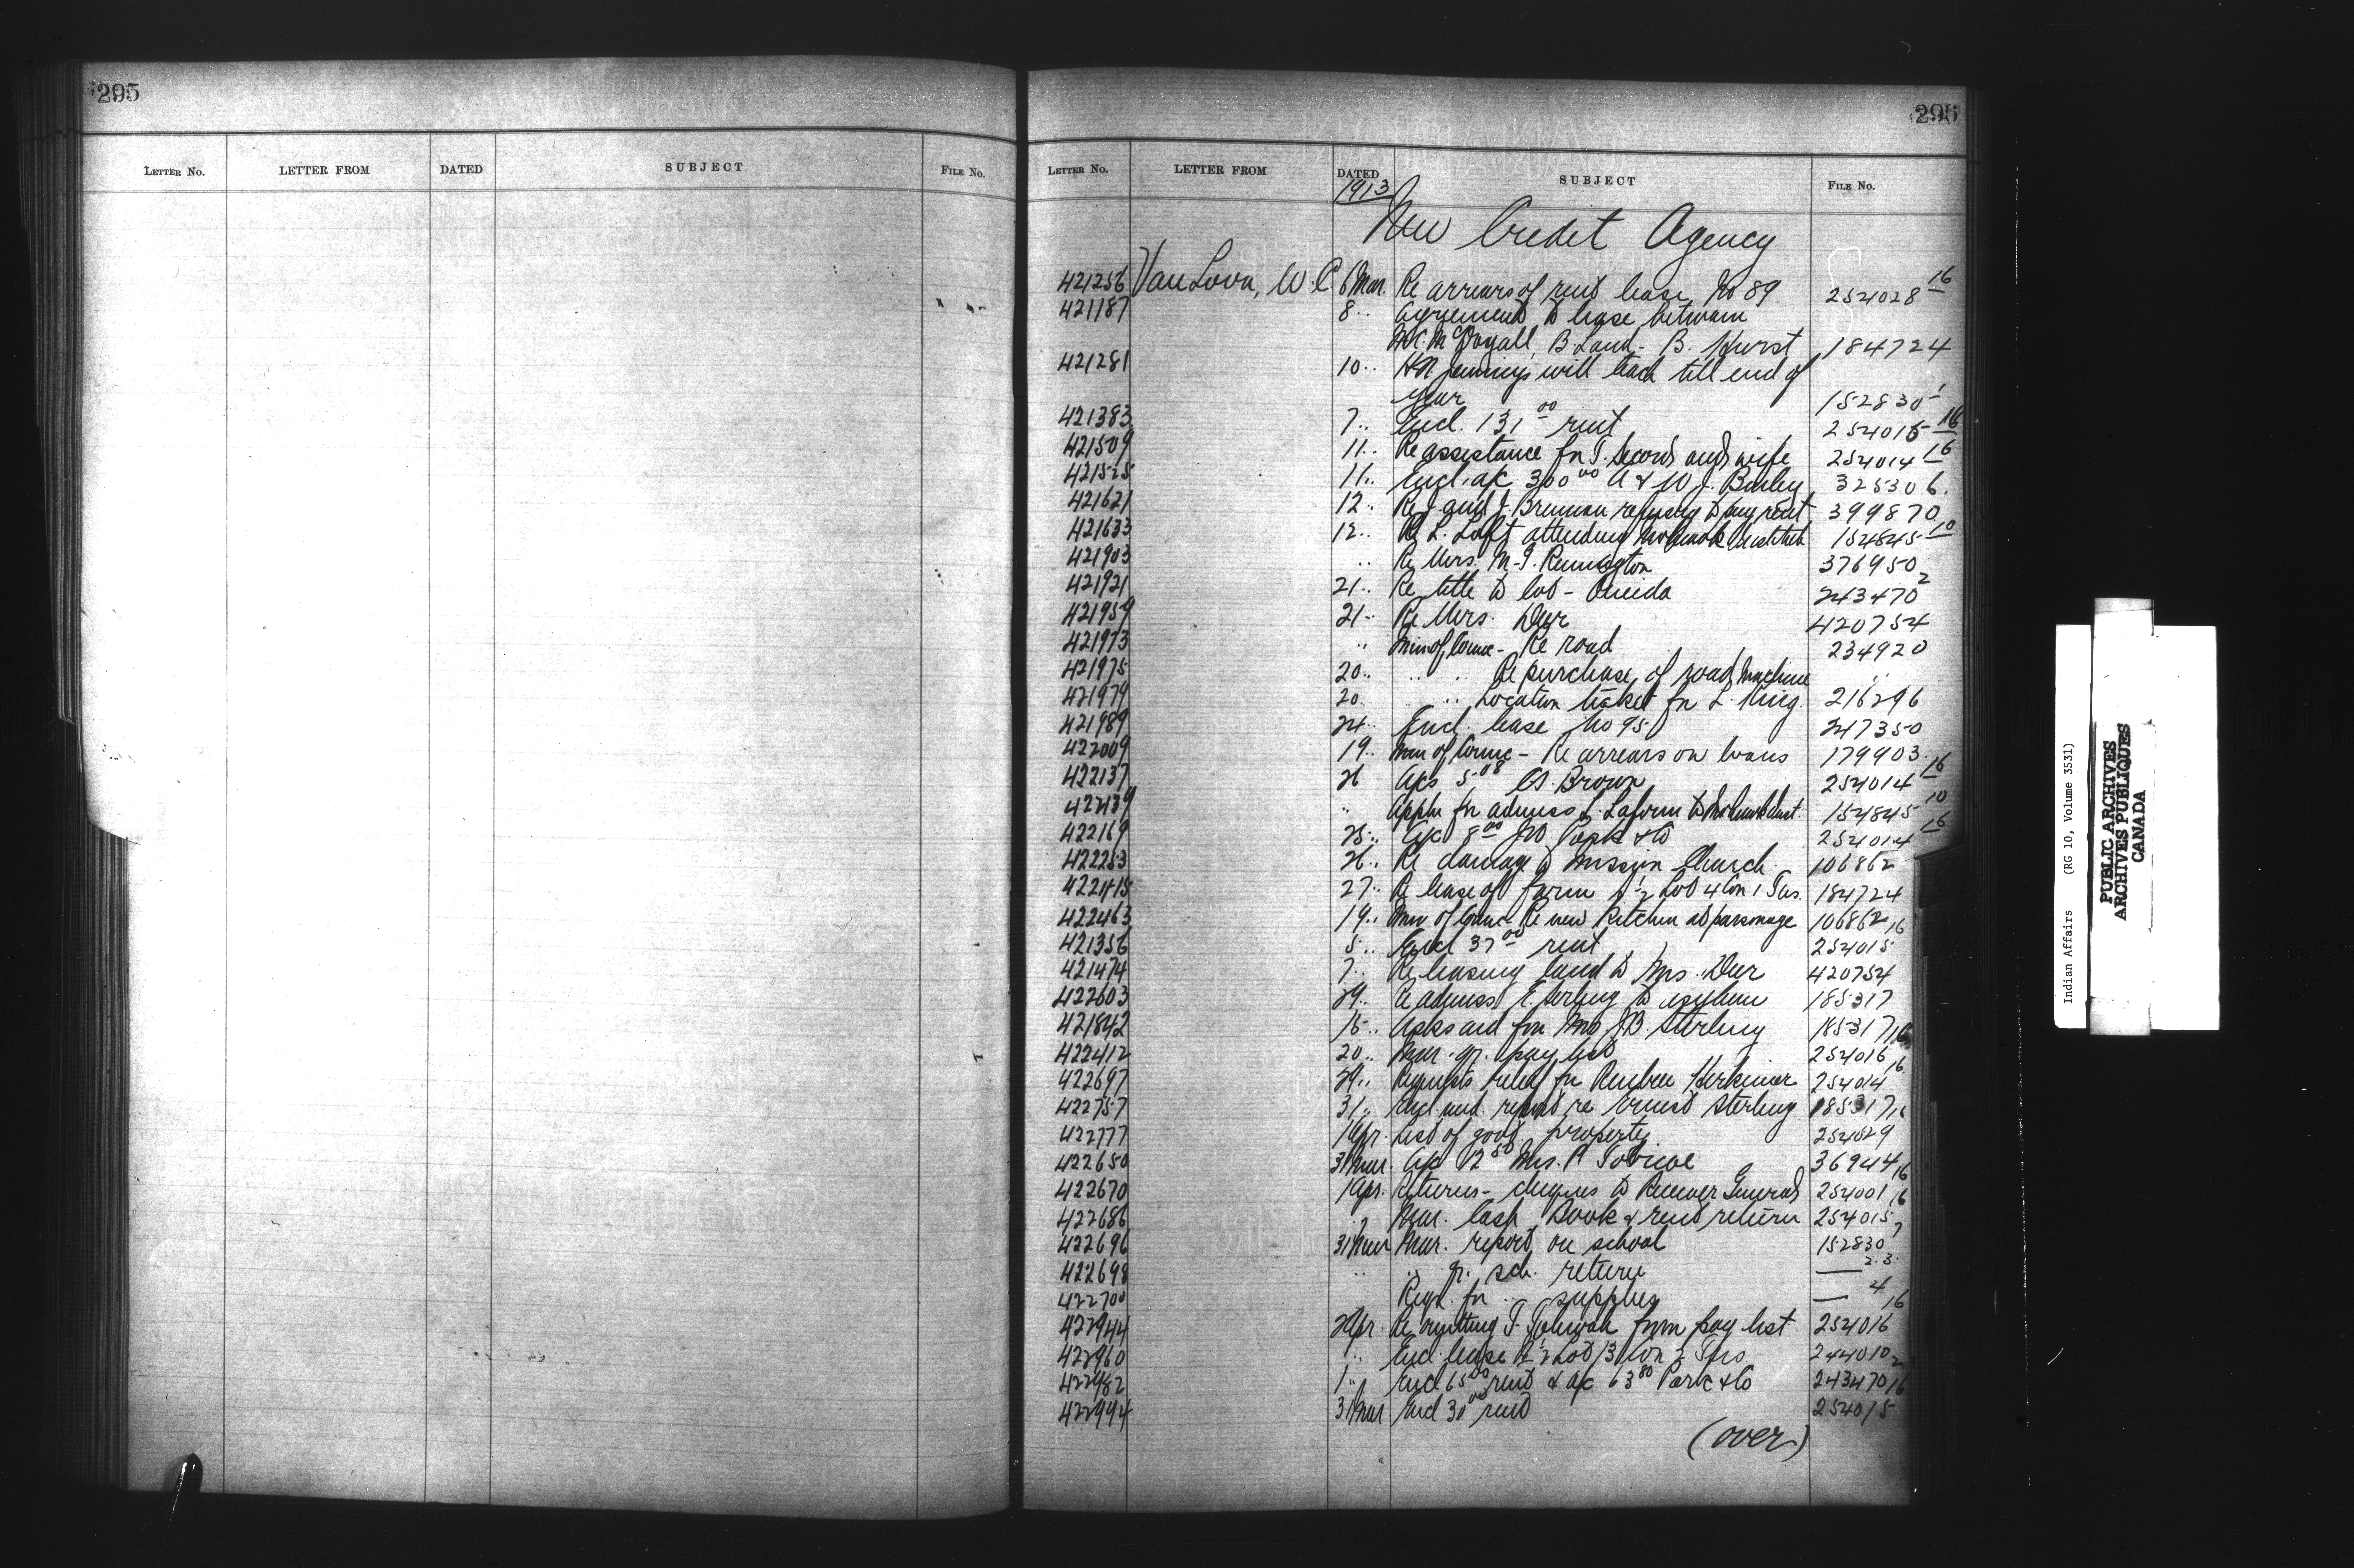 295
LETTER No. LETTER FROM DATED SUBJECT FILE No.
295
LETTER No. LETTER FROM DATED SUBJECT FILE No.
1913
New Credit Agency
421256 Van Loon, W.C. 6 Mar. Re arrears of rent lease No 89 254028 16
421187 8 .. Agreement to lease between
McDougall, B Land - B. Hurst 184724
421281 10 .. HN Jennings will teach till end of
year 152830 1
421383 7 .. Encl. 131 00 rent 254015 16
421509 11 .. Re assistance for J. Secord and wife 254014 16
421525 11 .. Encl. a/c 300 00 A & W J. Burley 325306.
421621 12 .. Re J. Brennan refusing to pay rent 399870
421633 12 .. Re L. Loft attending Mohawk Institute 154845 10
421903 .. Re Mrs. M. J. Remington 376950
421921 21 .. Re title to lot - Oneida 243470 2
421959 21 .. Re Mrs. Deer 420754
421973 .. Min of Counc - Re road 234920
421975 20 .. .. .. Re purchase of road machine ..
421979 20 .. Location ticket for L. King 216296
421989 24 .. Encl. lease No 95 247350
422009 19 .. Min of Counc - Re arrears on loans 179903
422137 26 A/cs 5 08 Brown 254014 16
422139 .. Appln for admiss L. Laform to Mohawk Inst. 154845 10
422169 25 .. A/c 8 00 JW Park & Co 254014 16
422253 26 .. Re damage to Mission Church 106862
422415 27 .. Re lease of farm ½ Lot 4 Con 1 Tus. 184724
422463 19 .. Min of Counc Re new kitchen at parsonage 106862
421356 5 .. Encl 37 00 rent 254015 16
421474 7 .. Re leasing land to Mrs. Deer 420754
422603 29 .. Re admiss E. Sterling to asylum 185317
421842 15 .. Asks aid for Mrs J B. Sterling 185317
422412 20 .. Mar. qr. pay list 254016 16
422697 29 .. Requests relief for Reuben Herkimer 254014 16
422757 31 .. Encl. med. report re Ernest Sterling 185317
422777 1 Apr. List of govt. property 254029
422650 31 Mar. A/c 12 50 Mrs. P Tobicoe 36944
422670 1 Apr. Returns - cheques to Receiver General 254001 16
422686 .. Mar. Cash Book & rent return 254015 16
422696 31 Mar Mar. report on school 152830 7
422698 .. .. qr. sch. return — 2.3.
422700 Reqn. for .. supplies — 4
422944 2 Apr. Re omitting T. Tobicoe from pay list 254016 16
422960 .. Encl. lease ½ Lot 13 Con 2 Tus 244010
422982 1 .. Encl 65 00 rent & a/c 63 80 Park & Co 243470 2
422994 31 Mar Encl 30 00 rent 254015 16
(over)
Indian Affairs (RG 10, Volume 3531)
PUBLIC ARCHIVES
ARCHIVES PUBLIQUES
CANADA